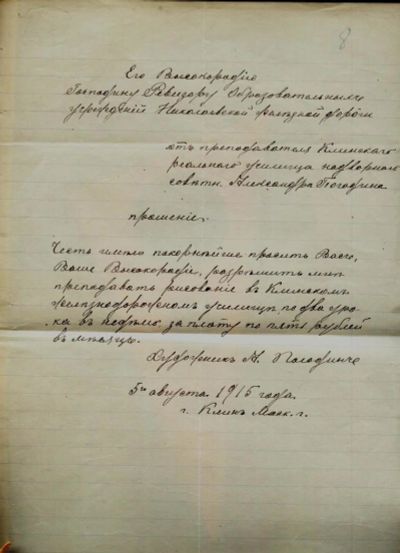 8
Его Высокородію
Господину Ревизору Образовательныхъ
учрежденій Николаевской желѣзной дороги
отъ преподавателя Клинскаго
реальнаго училища надворнаго
совѣтн. Александра Погодина
прошеніе.
Честь имѣю покорнѣйше просить Васъ,
Ваше Высокородіе, разрѣшить мнѣ
преподавать рисованіе въ Клинскомъ
желѣзнодорожномъ училищѣ по два уро-
ка въ недѣлю, за плату по пяти рублей
въ мѣсяцъ.
Художникъ А. Погодинъ
5го августа 1915 года.
г. Клинъ Моск. г.